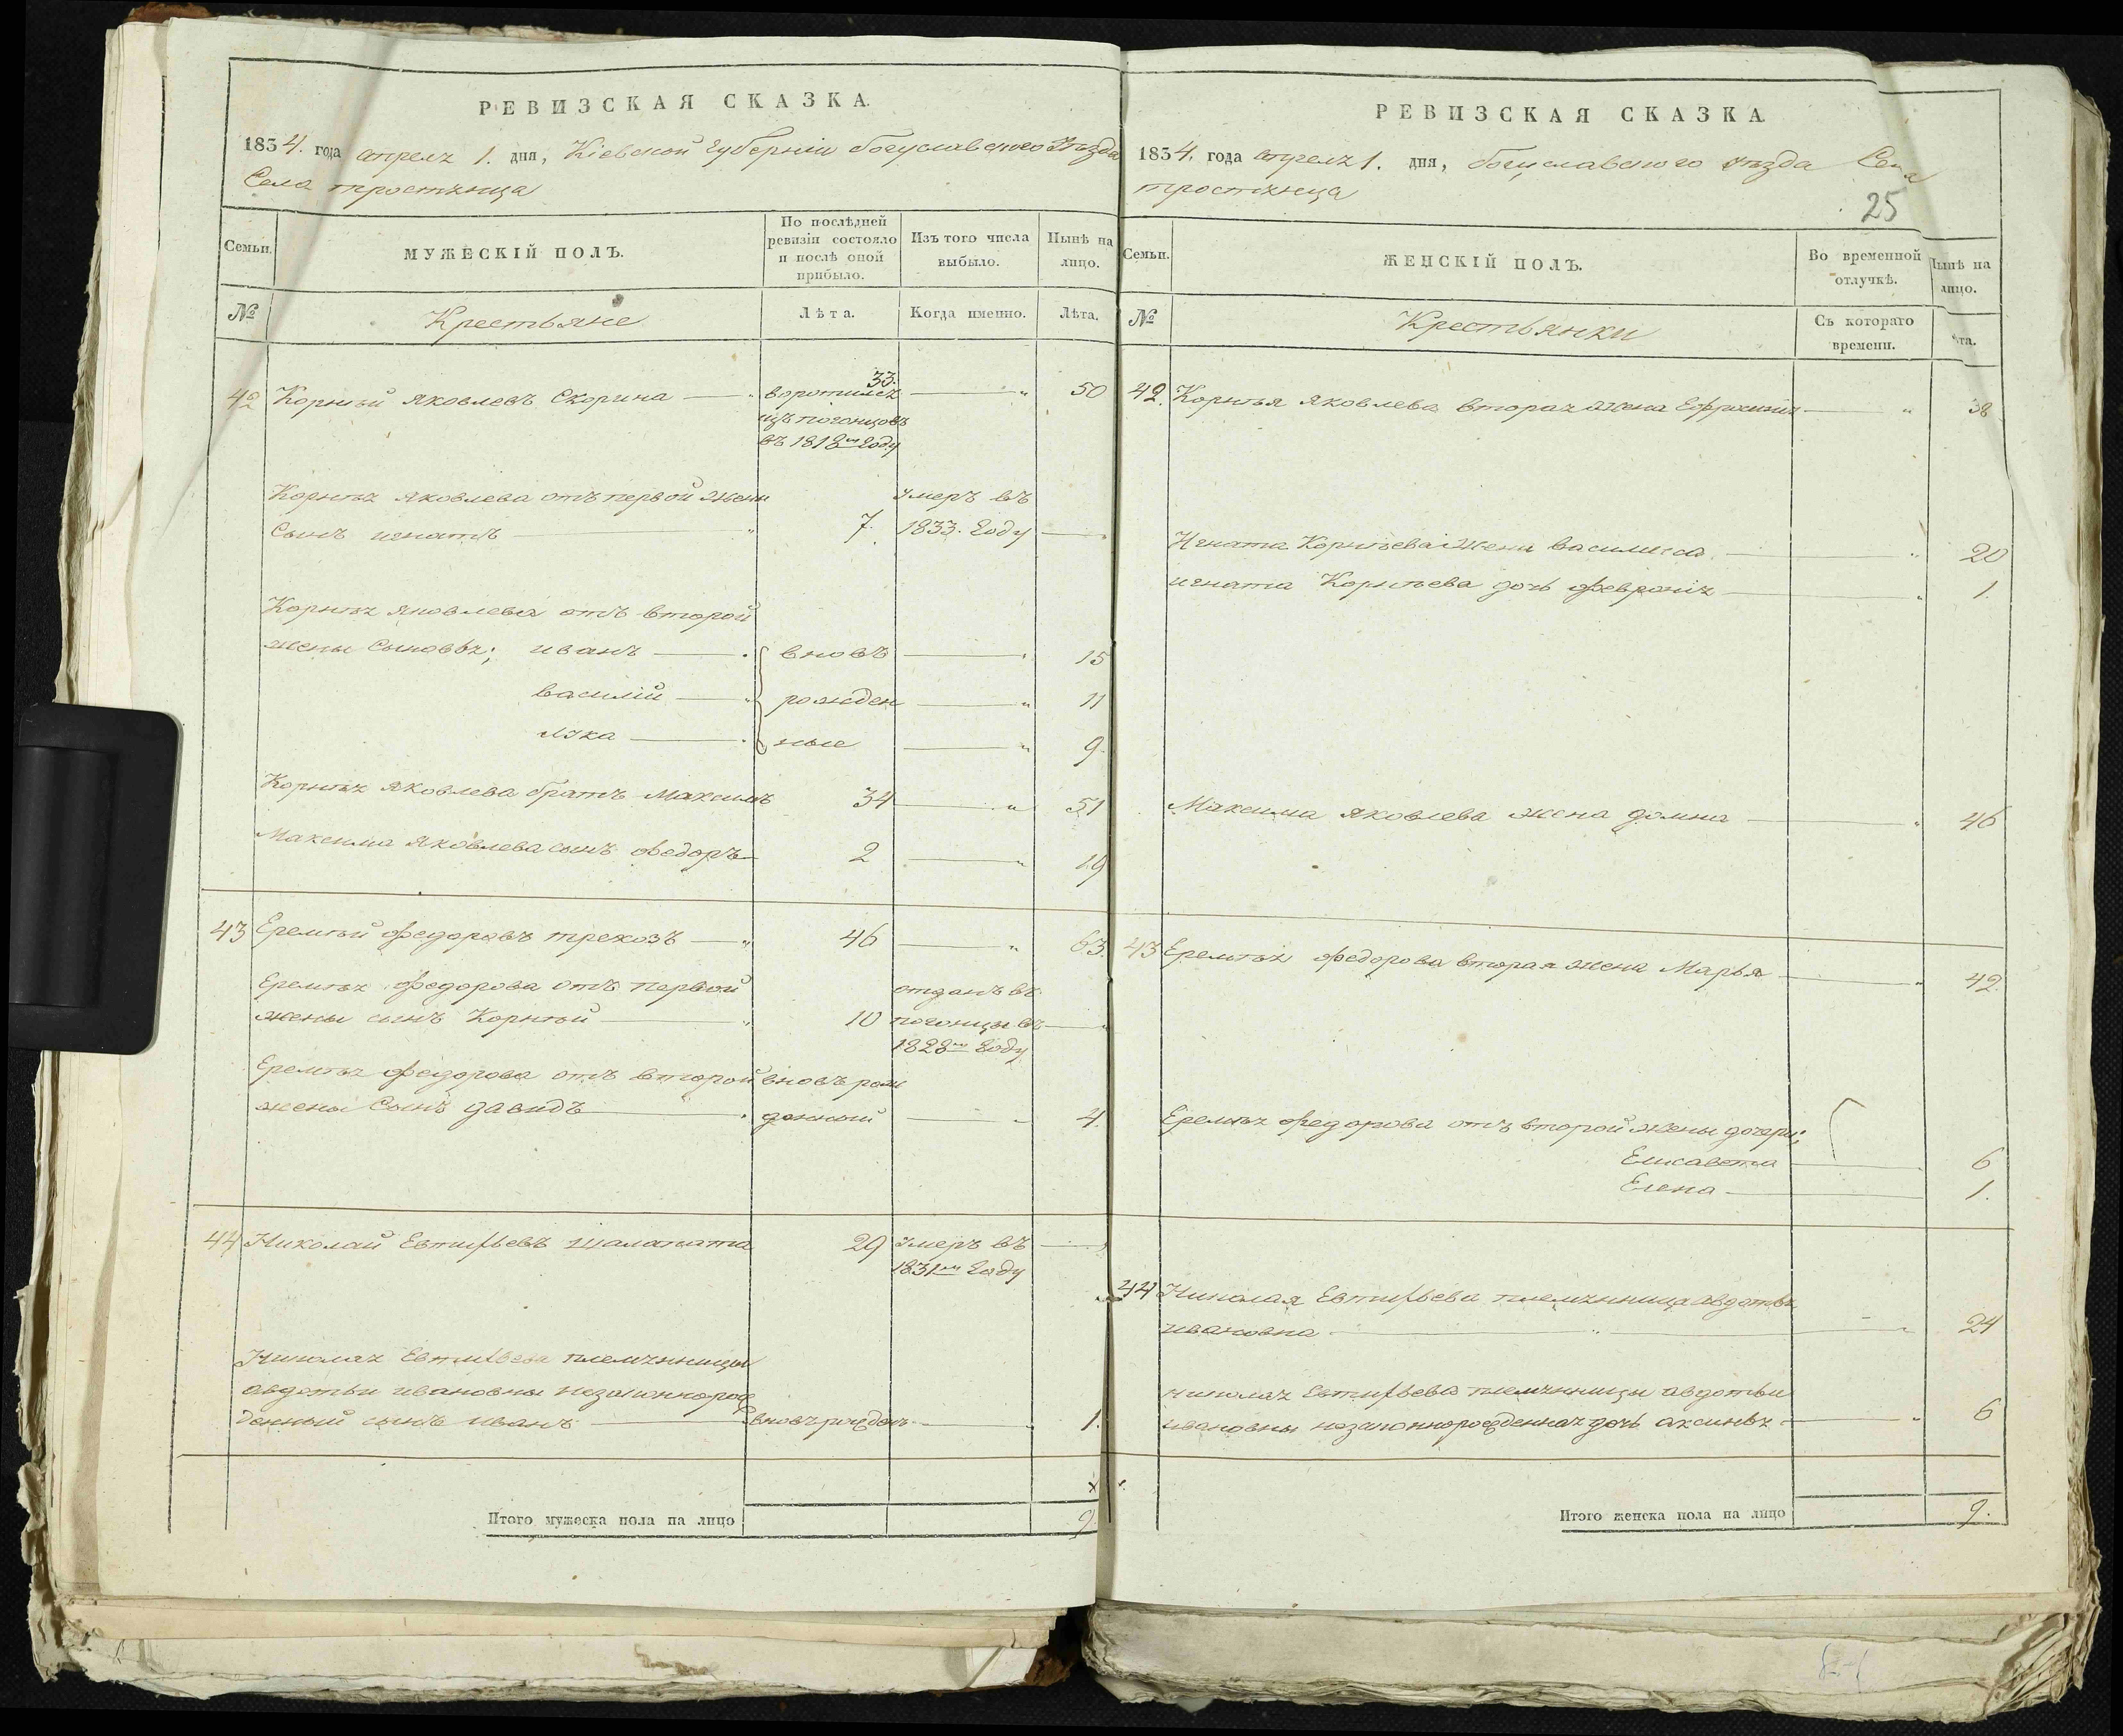 РЕВИЗСКАЯ СКАЗКА.
1834. года апреля 1. дня, Кіевской Губерніи богуславского Уезда
Села тростянца
Семьи.
МУЖЕСКІЙ ПОЛЪ.
По послѣдней ревизіи состояло и послѣ оной прибыло.
Изъ того числа выбыло.
Нынѣ на лицо.
№
Крестьяне
Лѣта.
Когда именно.
Лѣта.
42 Корнѣй Яковлевъ Скорина 33. 50
воротился
изъ погонцовъ
въ 1818м Году
Корнѣя Яковлева отъ первой жены умеръ въ
Сынъ игнатъ 7. 1833. Году
Корнѣя Яковлева отъ второй
жены Сыновья; иванъ вновъ 15
василій рожден 11
лука ные 9.
Корнѣя Яковлева братъ Максимъ 34 51
Максима Яковлева сынъ федоръ 2 19
43 Еремѣй федоровъ трекозъ 46 63.
Еремѣя федорова отъ первой отданъ въ
жены сынъ Корнѣй 10 погонцы въ
1828м Году
Еремѣя федорова отъ второй вновъ рож
жены Сынъ давидъ денный 4.
44 Николай Евтифьевъ шалапата 29 умеръ въ
1831м Году
Николая Евтифьева племянницы
авдотьи ивановны незаконнорож
денный сынъ иванъ вновърожденъ 1.
Итого мужеска пола на лицо 9.
РЕВИЗСКАЯ СКАЗКА
1834. года апреля 1. дня, богуславского уезда Села
тростянца
25
Семьи.
ЖЕНСКІЙ ПОЛЪ.
Во временной отлучкѣ.
Нынѣ на лицо.
№
Крестьянки
Съ котораго времени.
та.
42. Корнѣя Яковлева вторая жена Ефросиния 38
Игната Корнѣева жена василиса 20
игната Корнѣева дочь феврония 1.
Максима Яковлева жена домна 46
43 Еремѣя федорова вторая жена Марья 42.
Еремѣя федорова отъ второй жены дочери;
Елисавета 6
Елена 1.
44 Николая Евтифьева племянница авдотья
ивановна 24
николая Евтифьева племянницы авдотьи
ивановны незаконнорожденная дочь аксинья 6
Итого женска пола на лицо 9.